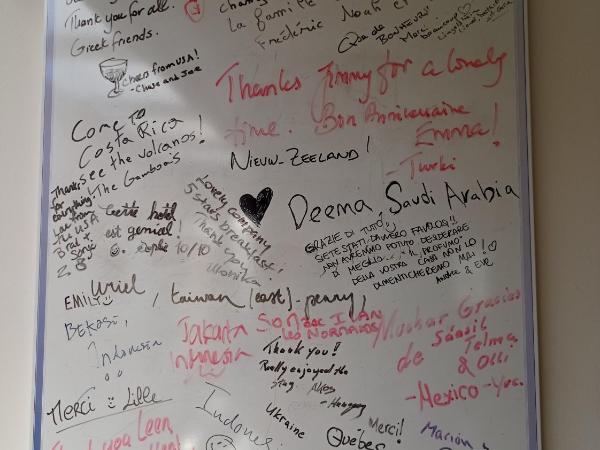 Thank you for all.
Greek friends.
La famille
Frédéric
Noah et
Que de
BONHEUR!!
Merci
beaucoup
Cheers from USA!
- Chase and Joe
Thanks Jimmy for a lovely
time. Bon Anniversaire
Emma!
- Turki
Come To
Costa Rica
see the volcanos!
The Gamboa's
NIEUW-ZEELAND!
Thanks
for
everything!
from
the USA
Cette hotel
est genial!
10/10
Lovely company
5 stars breakfast!
Thank you!
Monika
Deema, Saudi Arabia
GRAZIE DI TUTTO,
SIETE STATI DAVVERO FAVOLOSI!!
NON AVREMMO POTUTO DESIDERARE
DI MEGLIO... IL PROFUMO
DELLA VOSTRA CASA NON LO
DIMENTICHEREMO MAI!
EMIL
Uriel
, taiwan (east) - penny,
BEKASI,
Indonesia
Jakarta
Indonesia
Thank you!!
Really enjoyed the
stay.
- Hungary
Muchas Gracias
de
Telma
& Olli
- Mexico - Yuc.
Merci
Lille
Ukraine
Indonesi
Merci!
Québec
Marion
Thank you Leen